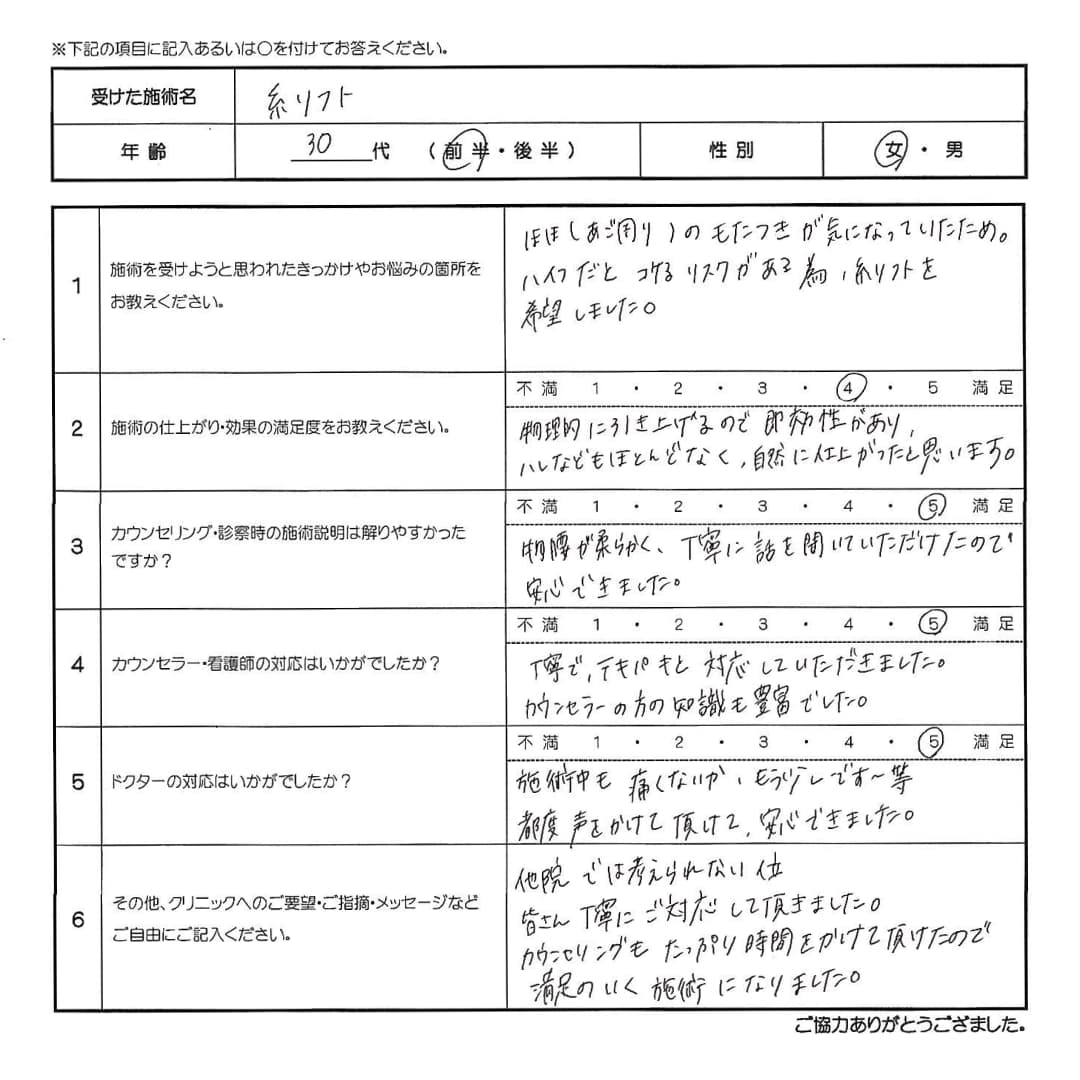 ※下記の項目に記入あるいは○を付けてお答えください。
受けた施術名 糸リフト
年齢 30代 (前半・後半) 性別 女・男
1 施術を受けようと思われたきっかけやお悩みの箇所を
お教えください。
ほほ(あご周り)のもたつきが気になっていたため。
ハイフだとコケるリスクがある為、糸リフトを
希望しました。
2 施術の仕上がり・効果の満足度をお教えください。
不満 1 ・ 2 ・ 3 ・ 4 ・ 5 満足
物理的に引き上げるので即効性があり、
ハレなどもほとんどなく、自然に仕上がったと思います。
3 カウンセリング・診察時の施術説明は解りやすかった
ですか?
不満 1 ・ 2 ・ 3 ・ 4 ・ 5 満足
物腰が柔らかく、丁寧に話を聞いていただけたので
安心できました。
4 カウンセラー・看護師の対応はいかがでしたか?
不満 1 ・ 2 ・ 3 ・ 4 ・ 5 満足
丁寧で、テキパキと対応していただきました。
カウンセラーの方の知識も豊富でした。
5 ドクターの対応はいかがでしたか?
不満 1 ・ 2 ・ 3 ・ 4 ・ 5 満足
施術中も痛くないか、もう少しです〜等
都度声をかけて頂けて、安心できました。
6 その他、クリニックへのご要望・ご指摘・メッセージなど
ご自由にご記入ください。
他院では考えられない位
皆さん丁寧にご対応して頂きました。
カウンセリングもたっぷり時間をかけて頂けたので
満足のいく施術になりました。
ご協力ありがとうござました。